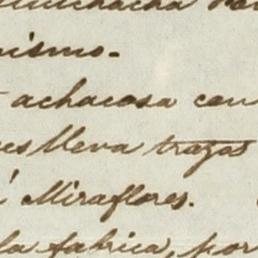 muchacha
nismo.
achacosa con
lleva trazas
Miraflores.
la fabrica, por